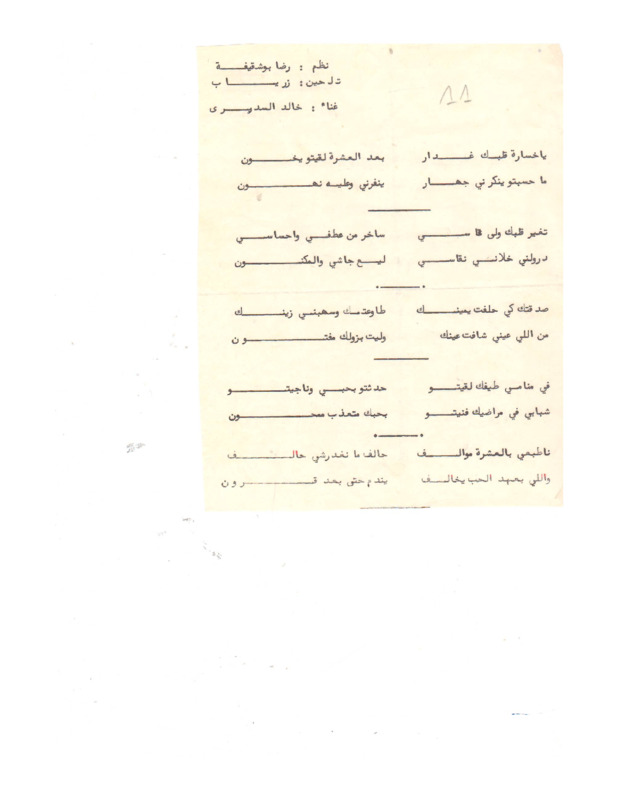 نظم : رضا بوشقيفة
تلحين: زرياب
غناء : خالد السديرى
11
ياخسارة قلبك غدار بعد العشرة لقيتو يخون
ما حسبتو ينكرني جهار ينفرني وطيه نهون
تغير قلبك ولى قاسي ساخر من عطفي واحساسي
درولني خلاني نقاسي ليع جاشي والمكنون
صدقتك كي حلفت بعينك طاوعتك وسهبني زينك
من اللي عيني شافت عينك وليت بزولك مفتون
في منامي طيفك لقيتو حدثتو بحبي وناجيتو
شبابي في مراضيك فنيتو بحبك متعذب ممحون
ناطبعي بالعشرة موالف حالف ما نغدرشي حالف
واللي بعهد الحب يخالف يندم حتى بعد قرون